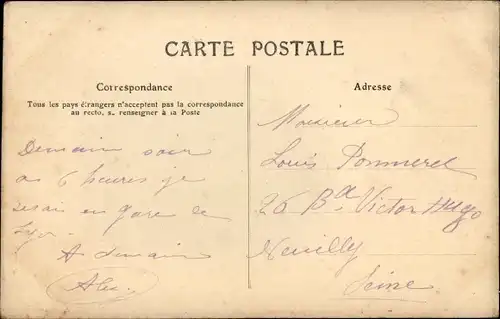 CARTE POSTALE
Correspondance
Tous les pays étrangers n'acceptent pas la correspondance
au recto, s. renseigner à la Poste
Demain soir
à 6 heures je
serais en gare de
Lyon
A demain
Alex.
Adresse
Monsieur
Louis Pommerel
26 Bd Victor Hugo
Neuilly
Seine